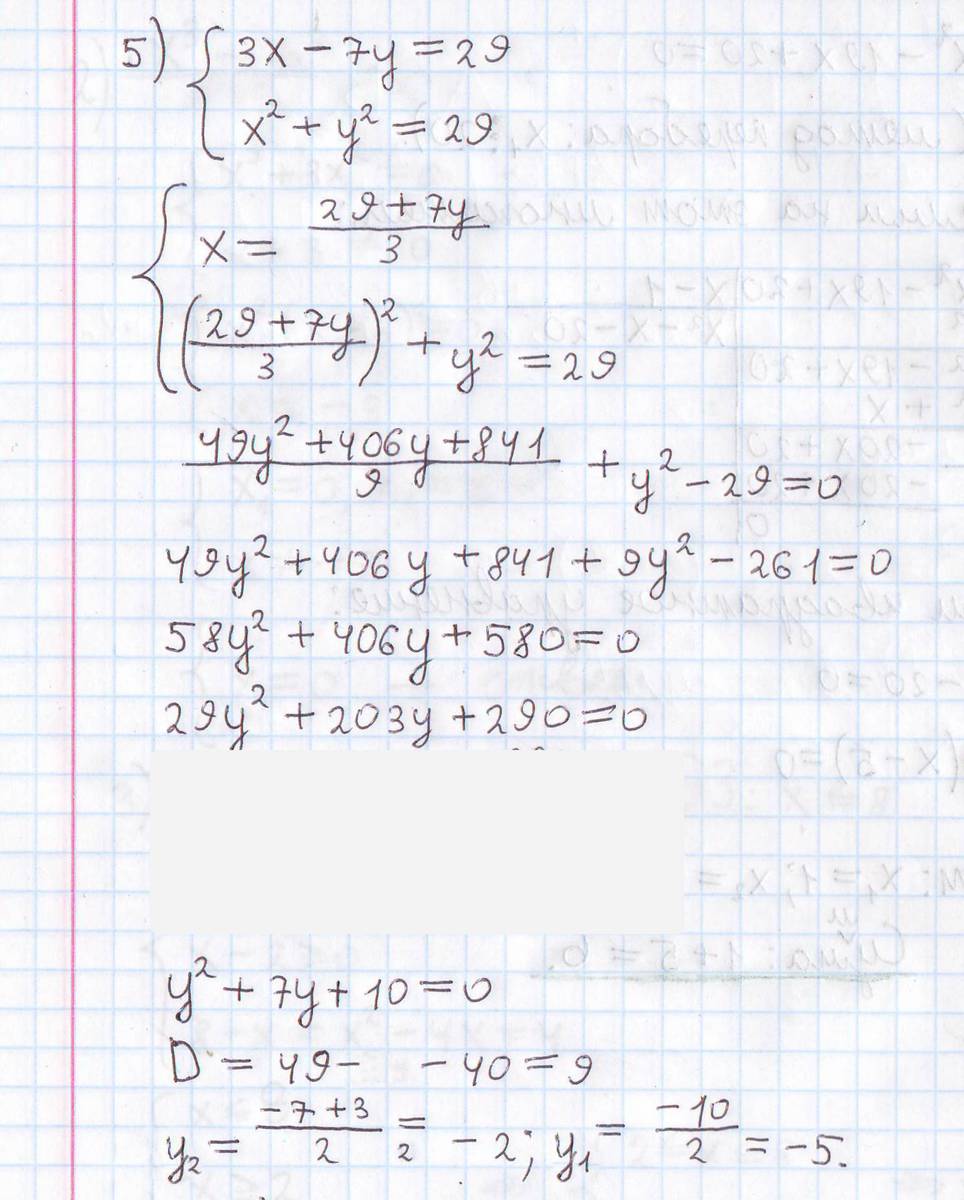 5) { 3x − 7y = 29
x² + y² = 29
{ x = (29 + 7y)/3
((29 + 7y)/3)² + y² = 29
(49y² + 406y + 841)/9 + y² − 29 = 0
49y² + 406y + 841 + 9y² − 261 = 0
58y² + 406y + 580 = 0
29y² + 203y + 290 = 0
y² + 7y + 10 = 0
D = 49 − − 40 = 9
y₂ = (−7 + 3)/2 =₂ −2; y₁ = −10/2 = −5.